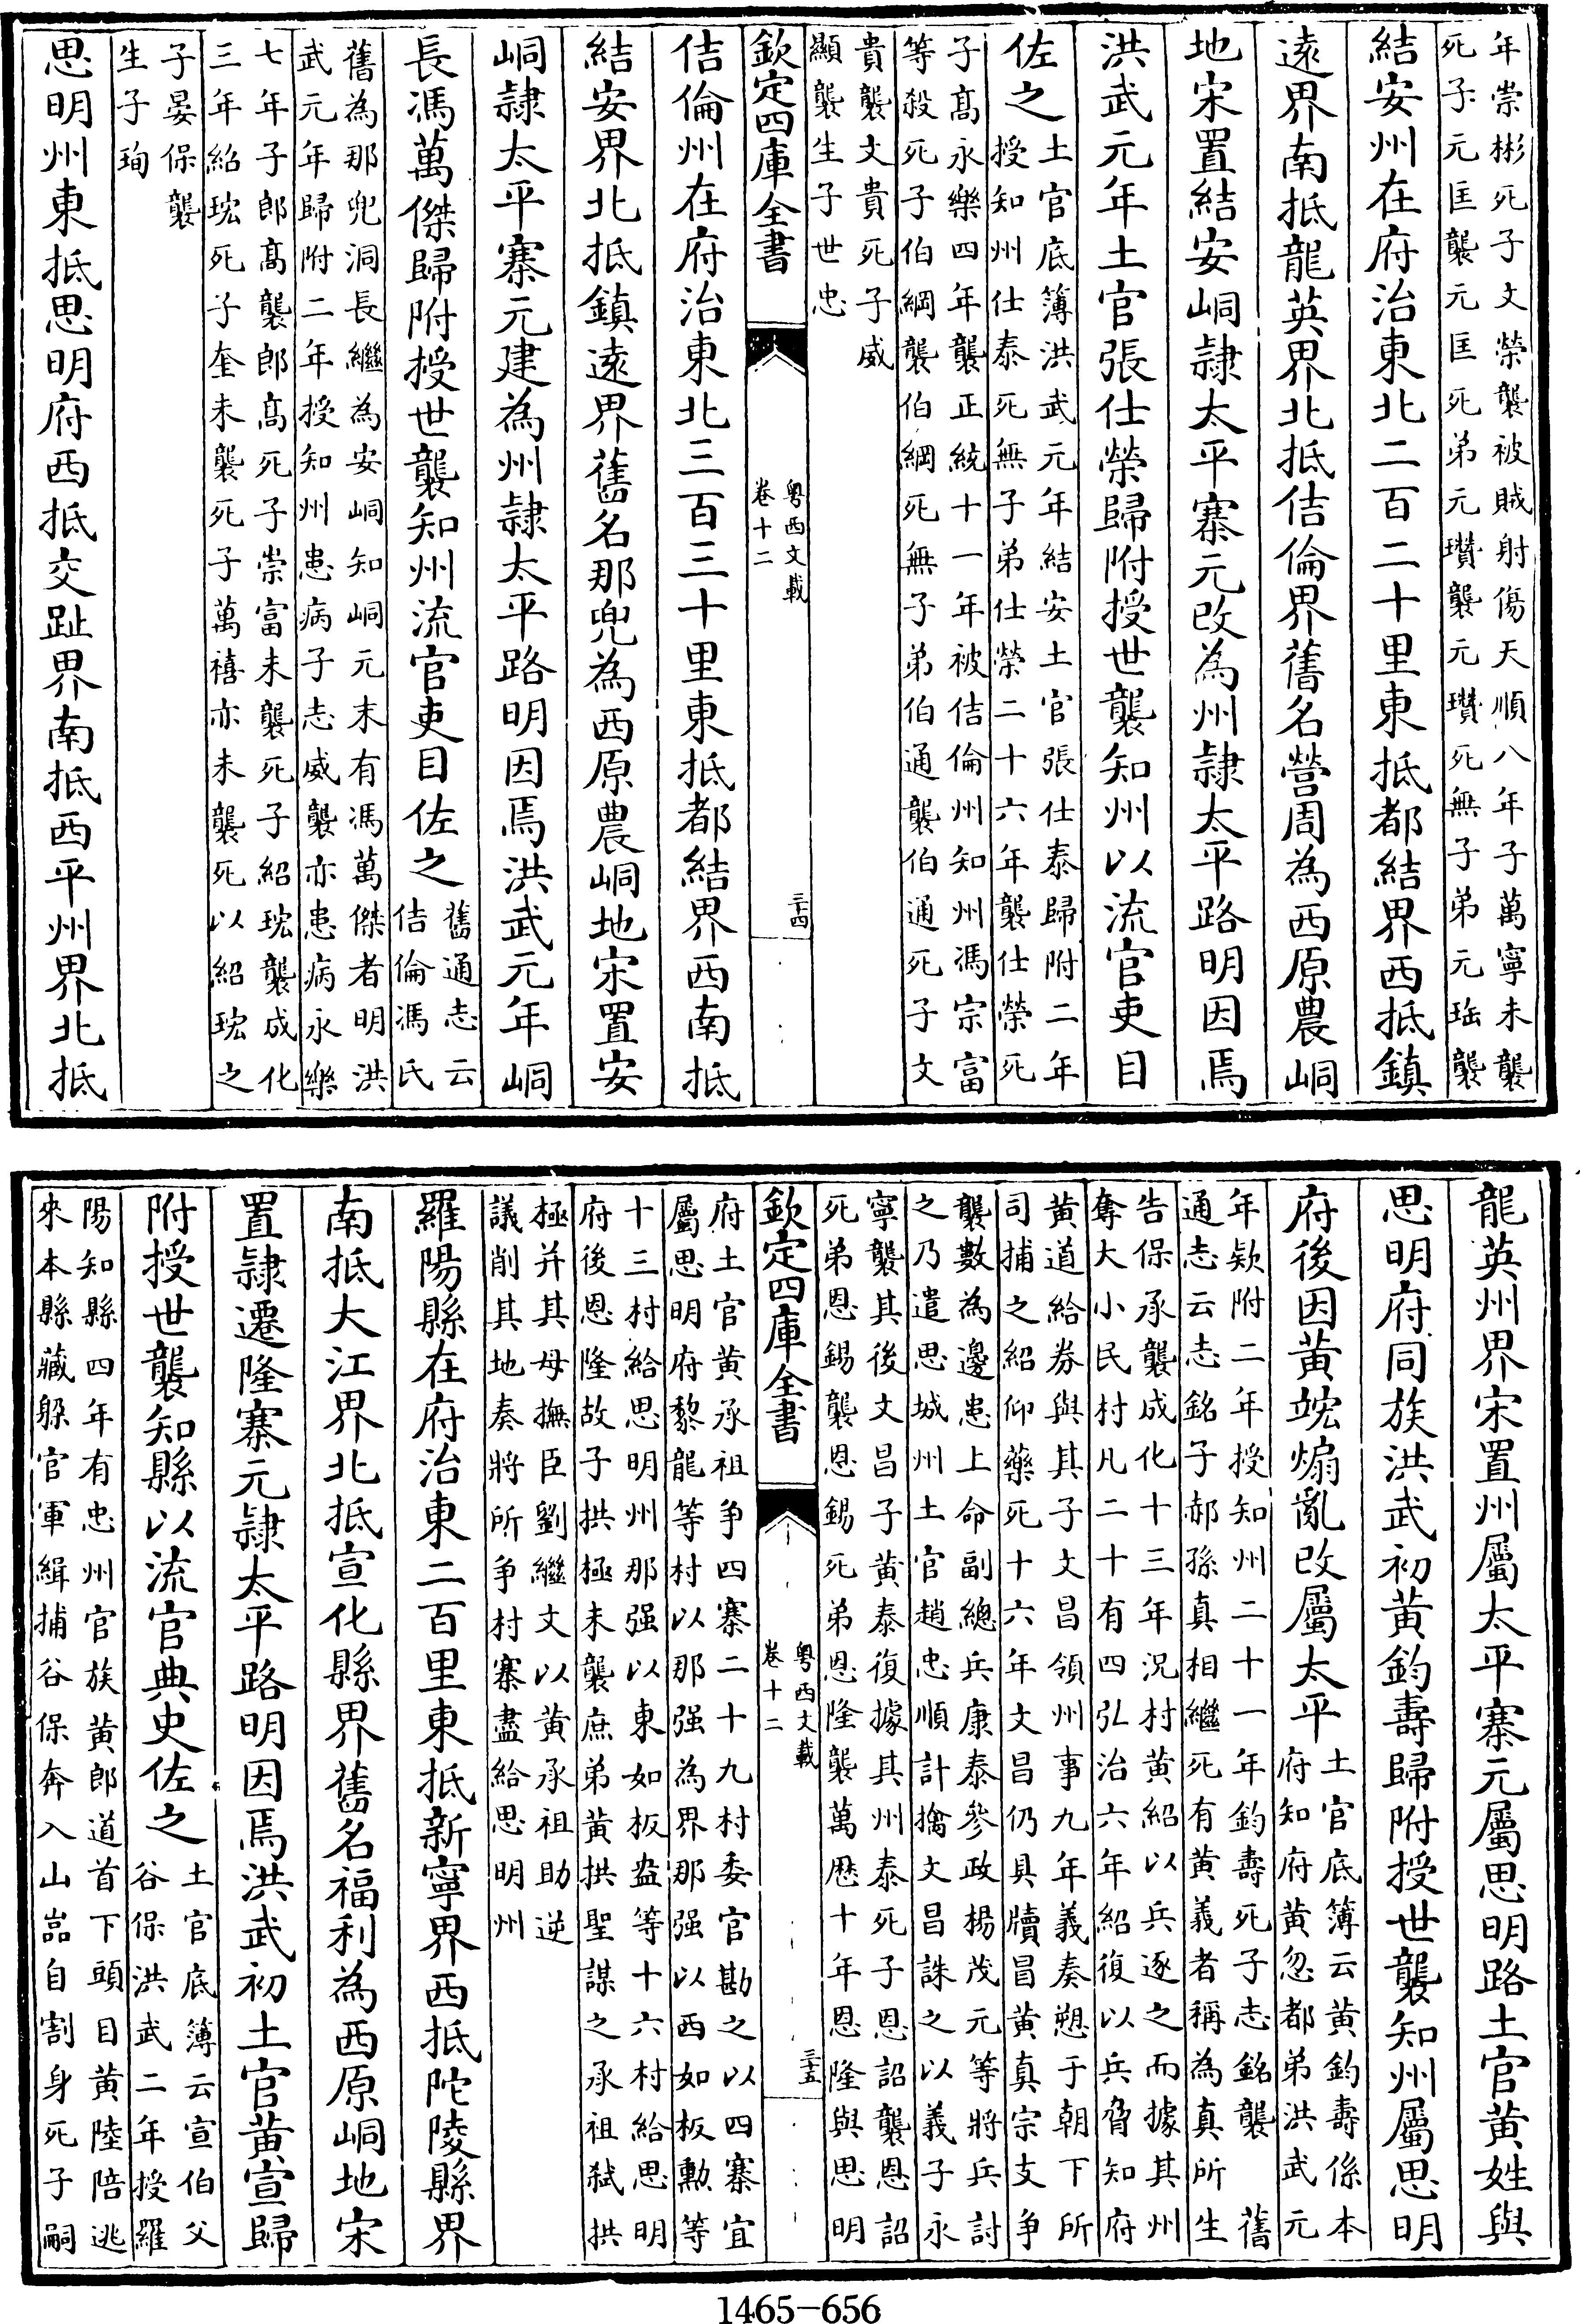 年崇彬死子文榮襲被賊射傷天順八年子萬寧未襲
死子元匡襲元匡死弟元瓚襲元瓚死無子弟元珤襲
結安州在府治東北二百二十里東抵都結界西抵鎮
遠界南抵龍英界北抵佶倫界舊名營周為西原農峒
地宋置結安峒隷太平寨元改為州隷太平路明因焉
洪武元年土官張仕榮歸附授世襲知州以流官吏目
佐之
土官底簿洪武元年結安土官張仕泰歸附二年
授知州仕泰死無子弟仕榮二十六年襲仕榮死
子高永樂四年襲正統十一年被佶倫州知州馮宗富
等殺死子伯綱襲伯綱死無子弟伯通襲伯通死子文
貴襲文貴死子威
顯襲生子世忠
欽定四庫全書
粤西文載
卷十二
三十四
佶倫州在府治東北三百三十里東抵都結界西南抵
結安界北抵鎮遠界舊名那兜為西原農峒地宋置安
峒隷太平寨元建為州隷太平路明因焉洪武元年峒
長馮萬傑歸附授世襲知州流官吏目佐之
舊通志云
佶倫馮氏
舊為那兜洞長繼為安峒知峒元末有馮萬傑者明洪
武元年歸附二年授知州患病子志威襲亦患病永樂
七年子郎高襲郎高死子崇富未襲死子紹珖襲成化
三年紹珖死子奎未襲死子萬禧亦未襲死以紹珖之
子晏保襲
生子珣
思明州東抵思明府西抵交趾界南抵西平州界北抵
龍英州界宋置州屬太平寨元屬思明路土官黃姓與
思明府同族洪武初黃鈞壽歸附授世襲知州屬思明
府後因黃竤煽亂改屬太平
土官底簿云黃鈞壽係本
府知府黃忽都弟洪武元
年欵附二年授知州二十一年鈞壽死子志銘襲 舊
通志云志銘子郝孫真相繼死有黃義者稱為真所生
告保承襲成化十三年況村黃紹以兵逐之而據其州
奪大小民村凡二十有四弘治六年紹復以兵脅知府
黃道給券與其子文昌領州事九年義奏愬于朝下所
司捕之紹仰藥死十六年文昌仍具牘昌黃真宗支争
襲數為邊患上命副總兵康泰參政楊茂元等將兵討
之乃遣思城州土官趙忠順計擒文昌誅之以義子永
寧襲其後文昌子黃泰復據其州泰死子恩詔襲恩詔
死弟恩錫襲恩錫死弟恩隆襲萬歴十年恩隆與思明
欽定四庫全書
粤西文載
卷十二
三十五
府土官黃承祖争四寨二十九村委官勘之以四寨宜
屬思明府黎龍等村以那强為界那强以西如板勲等
十三村給思明州那强以東如板盎等十六村給思明
府後恩隆故子拱極未襲庶弟黃拱聖謀之承祖弑拱
極并其母撫臣劉繼文以黃承祖助逆
議削其地奏將所争村寨盡給思明州
羅陽縣在府治東二百里東抵新寧界西抵陀陵縣界
南抵大江界北抵宣化縣界舊名福利為西原峒地宋
置隷遷隆寨元隷太平路明因焉洪武初土官黃宣歸
附授世襲知縣以流官典史佐之
土官底簿云宣伯父
谷保洪武二年授羅
陽知縣四年有忠州官族黃郎道首下頭目黃陸陪逃
來本縣藏躱官軍緝捕谷保奔入山嵓自割身死子嗣
1465-656